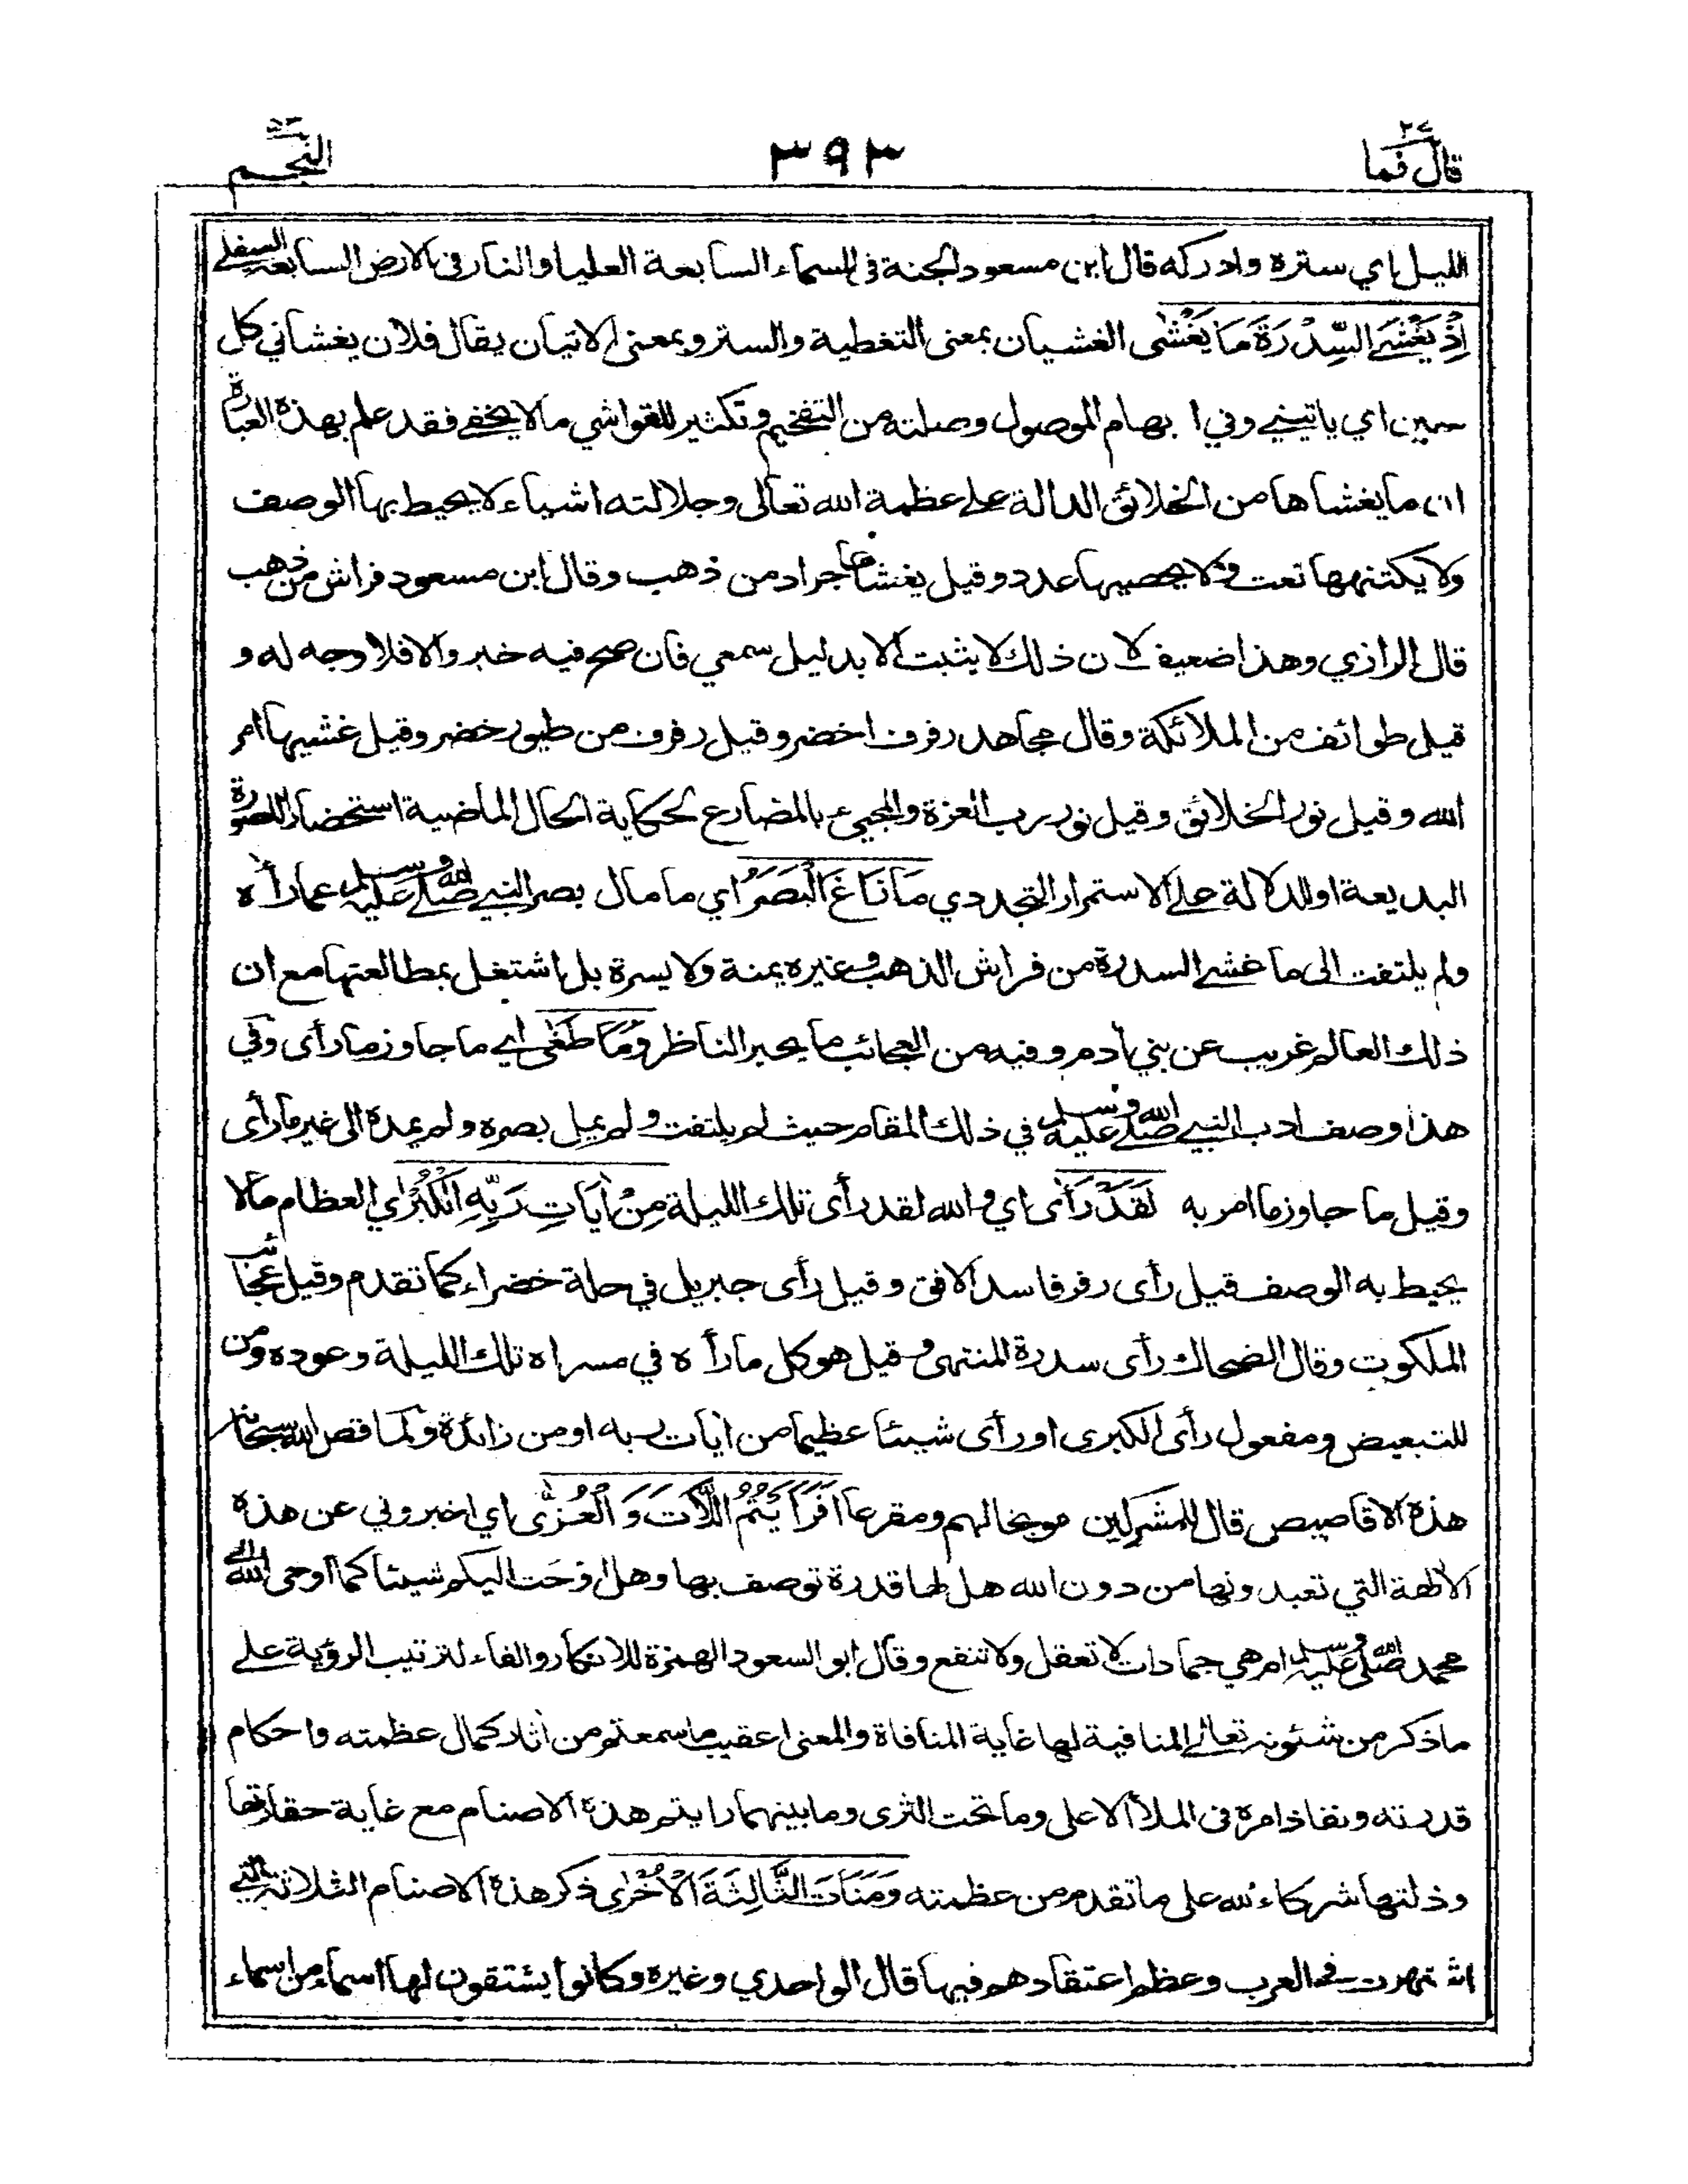 قال فما ٢٧
٣٩٣
النجم ٥٣
الليل اي ستره وادركه قال ابن مسعود الجنة في السماء السابعة العليا والنار في الارض السابعة السفلى
اِذْ يَغْشَى السِّدْرَةَ مَا يَغْشٰى الغشيان بمعنى التغطية والستر وبمعنى الاتيان يقال فلان يغشاني كل
حين اي ياتيني وفي ابهام الموصول وصلته من التفخيم وتكثير للغواشي مالا يخفى فقد علم بهذه العبارة
ان ما يغشاها من الخلائق الدالة على عظمة الله تعالى وجلالته اشياء لا يحيط بها الوصف
ولا يكتنهها نعت ولا يحصيها عدد وقيل يغشاها جراد من ذهب وقال ابن مسعود فراش من ذهب
قال الرازي وهذا ضعيف لان ذلك لا يثبت الا بدليل سمعي فان صح فيه خبر والا فلا وجه له و
قيل طوائف من الملائكة وقال مجاهد رفرف اخضر وقيل رفرف من طيور خضر وقيل غشيها امر
الله وقيل نور الخلائق وقيل نور رب العزة والمجيء بالمضارع لحكاية الحال الماضية استحضارا للصورة
البديعة او للدلالة على الاستمرار التجددي مَا زَاغَ الْبَصَرُ اي ما مال بصر النبي صلى الله عليه وسلم عما رأه
ولم يلتفت الى ما غشي السدرة من فراش الذهب وغيره يمنة ولا يسرة بل اشتغل بمطالعتها مع ان
ذلك العالم غريب عن بني ادم وفيه من العجائب ما يحير الناظر وَمَا طَغٰى اي ما جاوز ما رأى وفي
هذا وصف ادب النبي صلى الله عليه وسلم في ذلك المقام حيث لم يلتفت ولم يمل بصره ولم يمده الى غير ما رأى
وقيل ما جاوز ما امر به لَقَدْ رَأٰى اي والله لقد رأى تلك الليلة مِنْ اٰيَاتِ رَبِّهِ الْكُبْرٰى اي العظام مالا
يحيط به الوصف قيل رأى رفرفا سد الافق وقيل رأى جبريل في حلة خضراء كما تقدم وقيل عجائب
الملكوت وقال الضحاك رأى سدرة المنتهى وقيل هو كل ما رأه في مسراه تلك الليلة وعوده ومن
للتبعيض ومفعول رأى الكبرى او رأى شيئا عظيما من ايات ربه او من زائدة ولما قص الله سبحانه
هذه الاقاصيص قال للمشركين موبخا لهم ومقرعا اَفَرَاَيْتُمُ اللَّاتَ وَ الْعُزّٰى اي اخبروني عن هذه
الالهة التي تعبدونها من دون الله هل لها قدرة توصف بها وهل اوحت اليكم شيئا كما اوحى الله الى
محمد صلى الله عليه وسلم ام هي جمادات لا تعقل ولا تنفع وقال ابو السعود الهمزة للانكار والفاء لترتيب الرؤية على
ما ذكر من شئونه تعالى المنافية لها غاية المنافاة والمعنى اعقيب ما سمعتم من اثار كمال عظمته واحكام
قدرته ونفاذ امره في الملأ الاعلى وما تحت الثرى وما بينهما رايتم هذه الاصنام مع غاية حقارتها
وذلتها شركاء لله على ما تقدم من عظمته وَمَنَاتَ الثَّالِثَةَ الْاُخْرٰى ذكر هذه الاصنام الثلاثة التي
اشتهرت في العرب وعظم اعتقادهم فيها قال الواحدي وغيره وكانوا يشتقون لها اسماء من اسماء